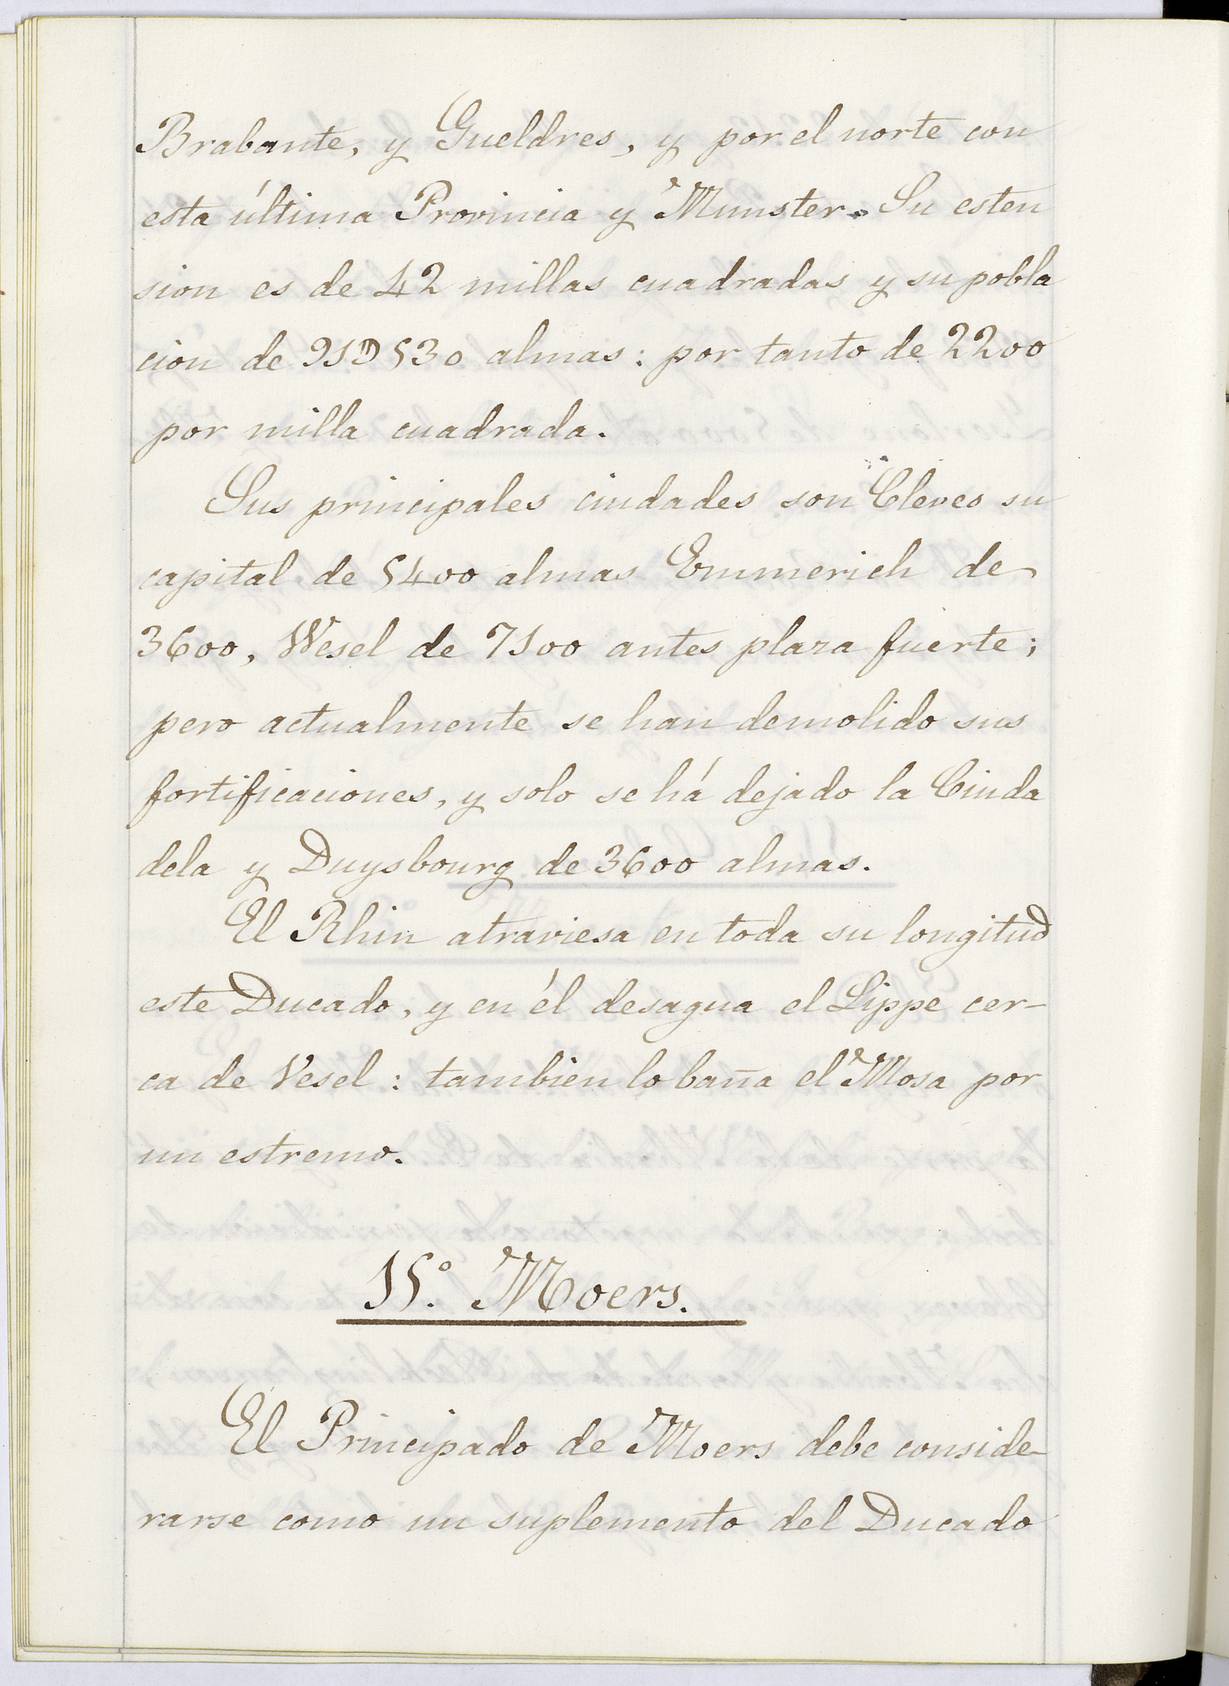 Brabante, y Gueldres, y por el norte con
esta última Provincia y Munster. Su esten
sion es de 42 millas cuadradas y su pobla
cion de 91D530 almas: por tanto de 2200
por milla cuadrada.
Sus principales ciudades son Cleves su
capital de 5400 almas Emmerich de
3600, Wesel de 7100 antes plaza fuerte;
pero actualmente se han demolido sus
fortificaciones, y solo se há dejado la Ciuda
dela y Duysbourg de 3600 almas.
El Rhin atraviesa en toda su longitud
este Ducado, y en él desagua el Lippe cer-
ca de Vesel: tambien lo baña el Mosa por
un estremo.
15.º Moers.
El Principado de Moers debe conside-
rarse como un suplemento del Ducado